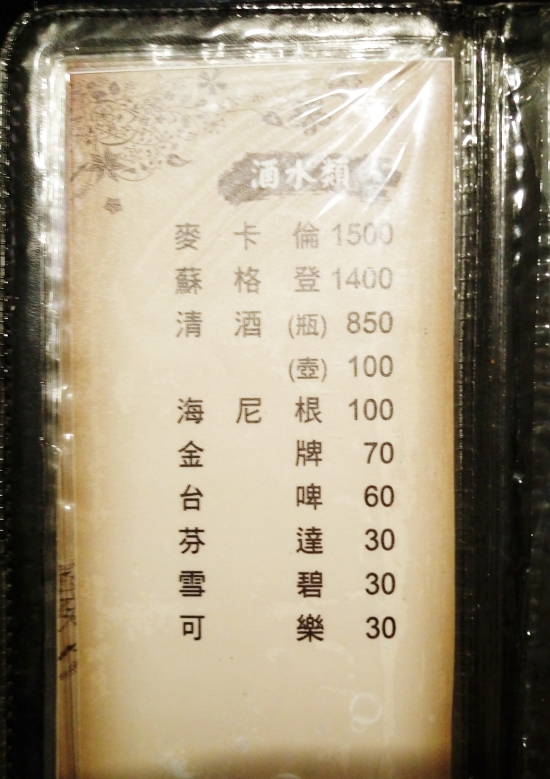 酒水類
麥卡倫 1500
蘇格登 1400
清酒 (瓶) 850
(壺) 100
海尼根 100
金牌 70
台啤 60
芬達 30
雪碧 30
可樂 30